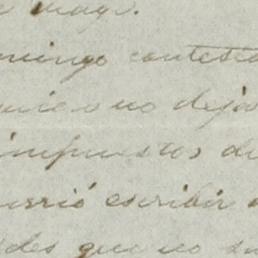 mingo contesta
quiero no deja
impuestos de
urrió escribir
des que no su